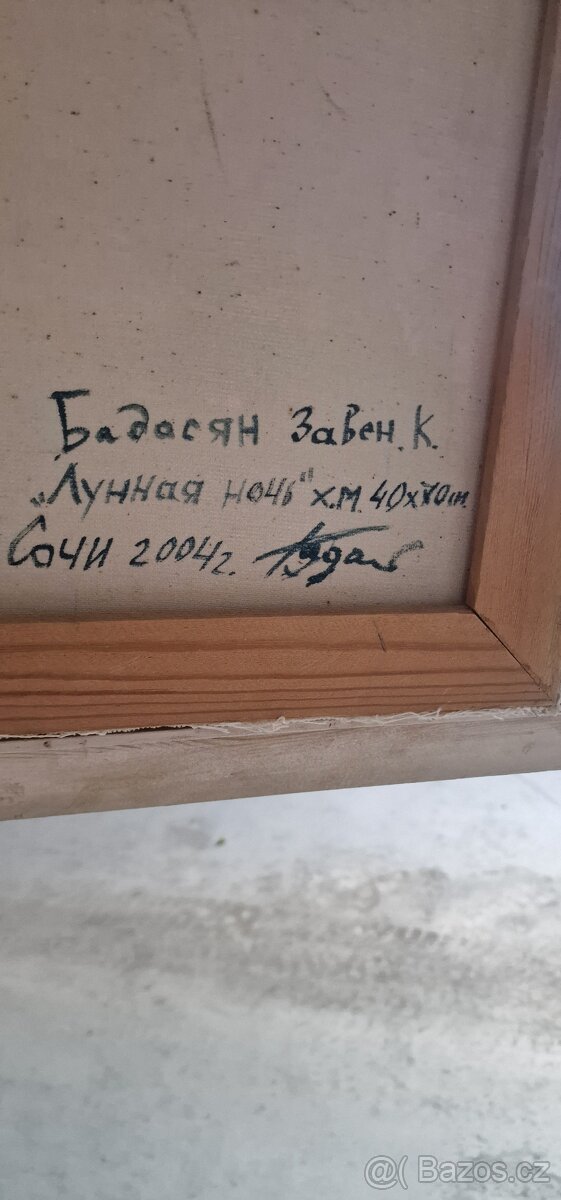 Бадасян Завен.К.
„Лунная ночь" х.м. 40х70cm.
Сочи 2004г.
@ Bazos.cz